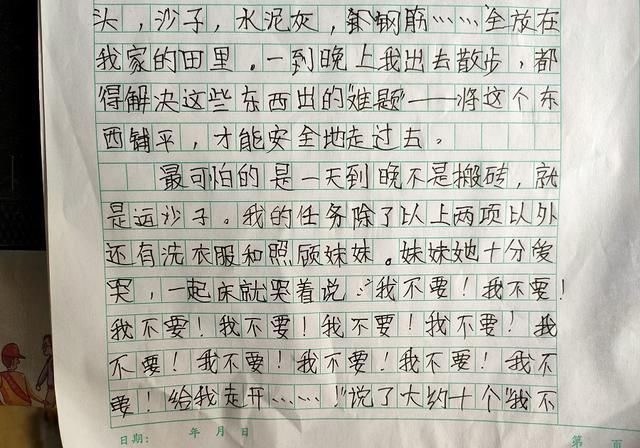 头，沙子，水泥灰，钢筋……全放在
我家的田里。一到晚上我出去散步，都
得解决这些东西出的"难题"——将这个东
西铺平，才能安全地走过去。
最可怕的是一天到晚不是搬砖，就
是运沙子。我的任务除了以上两项以外
还有洗衣服和照顾妹妹。妹妹她十分爱
哭，一起床就哭着说："我不要！我不要！
我不要！我不要！我不要！我不要！我
不要！我不要！我不要！我不要！我不
要！给我走开……！"说了大约十个"我不
日期： 年 月 日
第 页